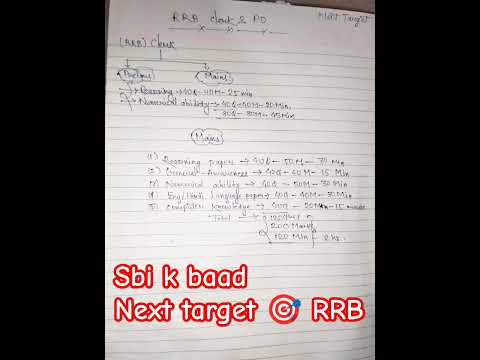 RRB clerk & PO
Next Target
(RRB) Clerk
Prelims
Mains
Reasoning → 40Q - 40M - 25 min
Numerical ability → 40Q - 40M - 20 min
80Q - 80M - 45 Min
Mains
(1) Reasoning paper → 40Q - 50M - 30 Min
(2) General Awareness → 40Q - 40M - 15 Min
(3) Numerical ability → 40Q - 50M - 30 Min
(4) Eng/Hindi Language paper → 40Q - 40M - 30 Min
(5) Computer Knowledge → 40Q - 20M - 15 minute
Total →
200 Mark
120 Min
2 hr
Sbi k baad
Next target 🎯 RRB